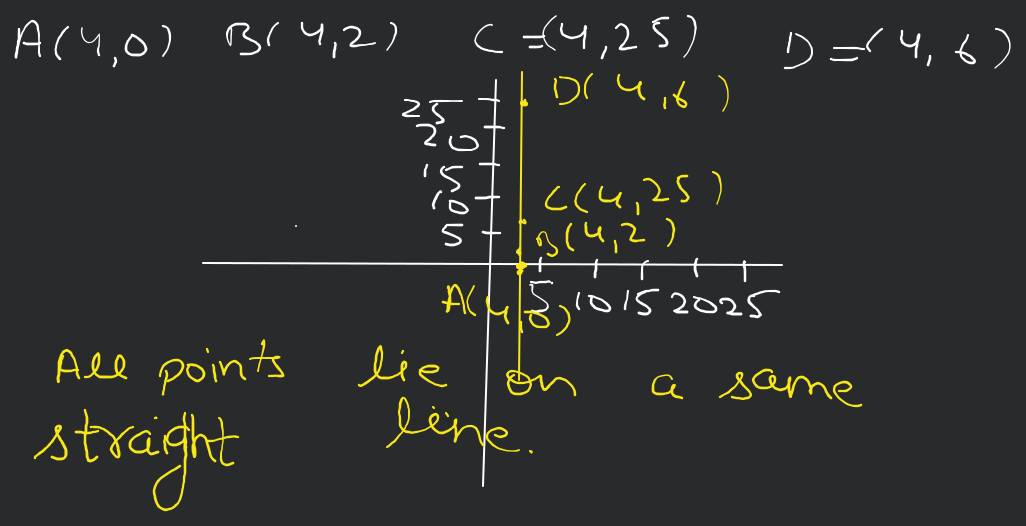 A(4,0) B(4,2) C=(4,25) D=(4,6)
D(4,6)
25
20
15
10
5
C(4,25)
B(4,2)
A(4,0)
5 10 15 20 25
All points lie on a same
straight line.